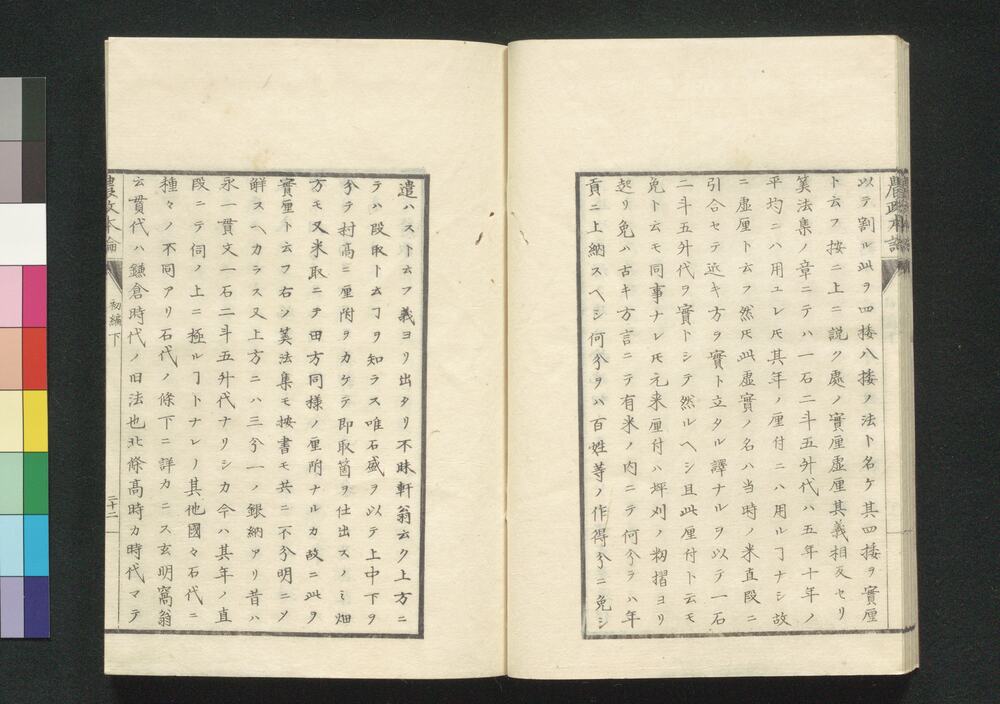 農政本論
以テ割ル此ヲ四捿八捿ノ法ト名ケ其四捿ヲ實厘
ト云フ按ニ上ニ説ク處ノ實厘虚厘其義相反セリ
筭法集ノ章ニテハ一石二斗五升代ハ五年十年ノ
平均ニハ用ユレ𪜈其年ノ厘付ニハ用ルヿナシ故
ニ虚厘ト云フ然𪜈此虚實ノ名ハ当時ノ米直段ニ
引合セテ近キ方ヲ實ト立タル譯ナルヲ以テ一石
二斗五升代ヲ實トシテ然ルヘシ且此厘付ト云モ
免ト云モ同事ナレ𪜈元来厘付ハ坪刈ノ籾摺ヨリ
起リ免ハ古キ方言ニテ有米ノ内ニテ何分ヲハ年
貢ニ上納スヘシ何分ヲハ百姓等ノ作得分ニ免シ
遣ハスト云フ義ヨリ出タリ不昧軒翁云ク上方ニ
テハ段取ト云ヿヲ知ラス唯石盛ヲ以テ上中下ヲ
分テ村高ニ厘附ヲカケテ即取箇ヲ仕出スノミ畑
方モ又米取ニテ田方同様ノ厘附ナルカ故ニ此ヲ
實厘ト云フ右ノ筭法集モ按書モ共ニ不分明ニ〆
解スヘカラス又上方ニハ三分一ノ銀納アリ昔ハ
永一貫文一石二斗五升代ナリシカ今ハ其年ノ直
段ニテ伺ノ上ニ極ルヿトナレリ其他國々石代ニ
種々ノ不同アリ石代ノ條下ニ詳カニス玄明窩翁
云貫代ハ鎌倉時代ノ旧法也北條高時カ時代マテ
農政本論
初編下
二十二